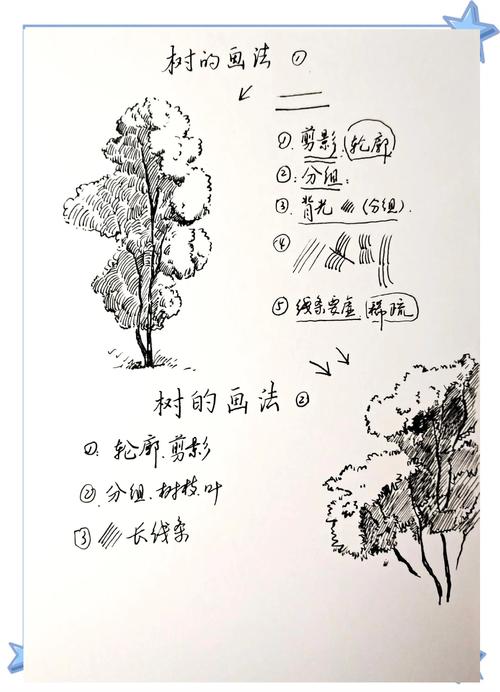 树的画法 ①
①. 剪影. 轮廓
②. 分组.
③. 背光 (分组).
④
⑤ 线条要虚. 稀疏
树的画法 ②
①. 轮廓. 剪影
②. 分组. 树枝. 叶
③ 长线条